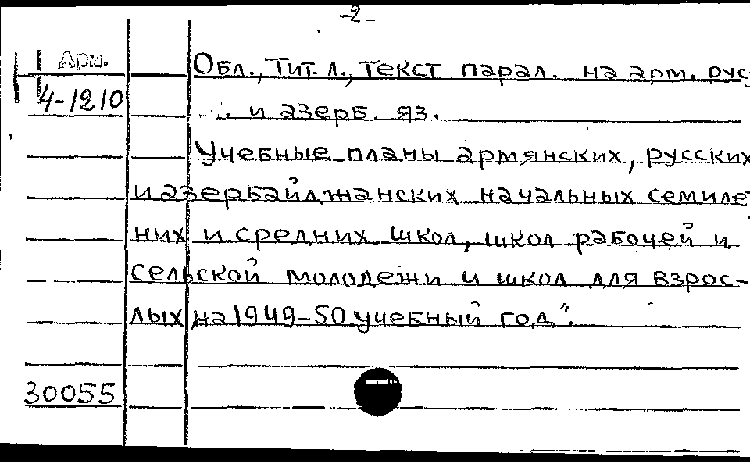 -2-
Арм.
4-1210
Обл., тит. л., текст парал. на арм. рус
и азерб. яз.
Учебные планы армянских, русских
и азербайджанских начальных семиле
них и средних школ, школ рабочей и
сельской молодежи и школ для взрос-
лых на 1949-50 учебный год".
30055